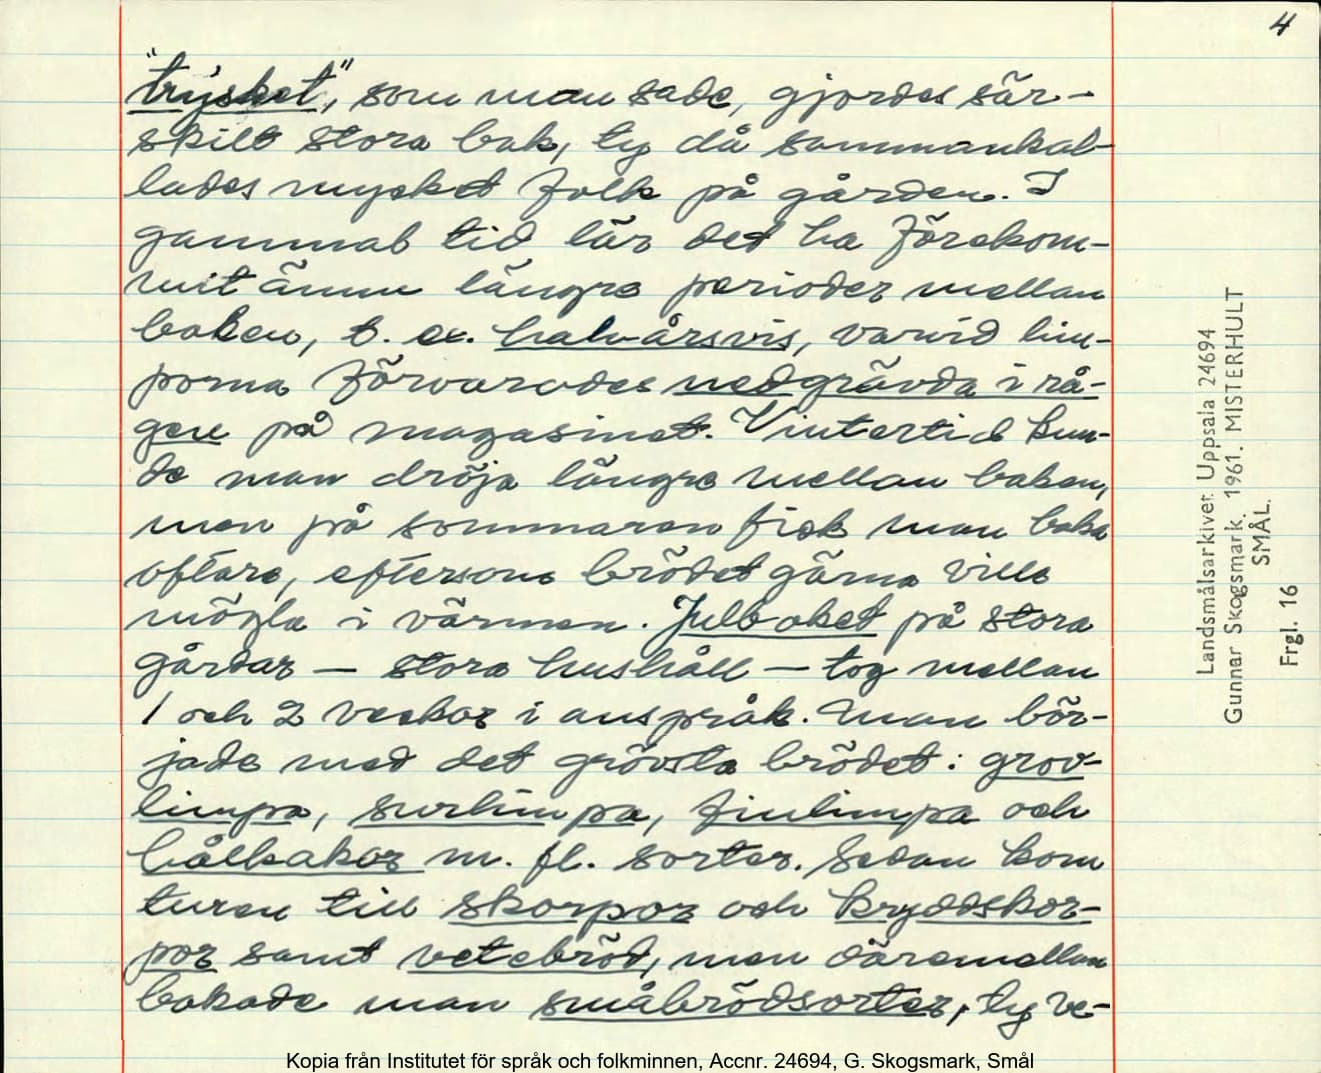 4
"trysket", som man sade, gjordes sär-
skilt stora bak, ty då sammankal-
lades mycket folk på gården. I
gammal tid lär det ha förekom-
mit ännu längre perioder mellan
baken, t. ex. halvårsvis, varvid lim-
porna förvarades nedgrävda i rå-
gen på magasinet. Vintertid kun-
de man dröja längre mellan baken,
men på sommaren fick man baka
oftare, eftersom brödet gärna ville
mögla i värmen. Julbaket på stora
gårdar – stora hushåll – tog mellan
1 och 2 veckor i anspråk. Man bör-
jade med det grövsta brödet: grov-
limpa, surlimpa, finlimpa och
hålkakor m. fl. sorter. Sedan kom
turen till skorpor och kryddskor-
por samt vetebröd, men däremellan
bakade man småbrödsorter, ty ve-
Landsmålsarkivet Uppsala 24694
Gunnar Skogsmark. 1961. MISTERHULT
SMÅL.
Frgl. 16
Kopia från Institutet för språk och folkminnen, Accnr. 24694, G. Skogsmark, Smål